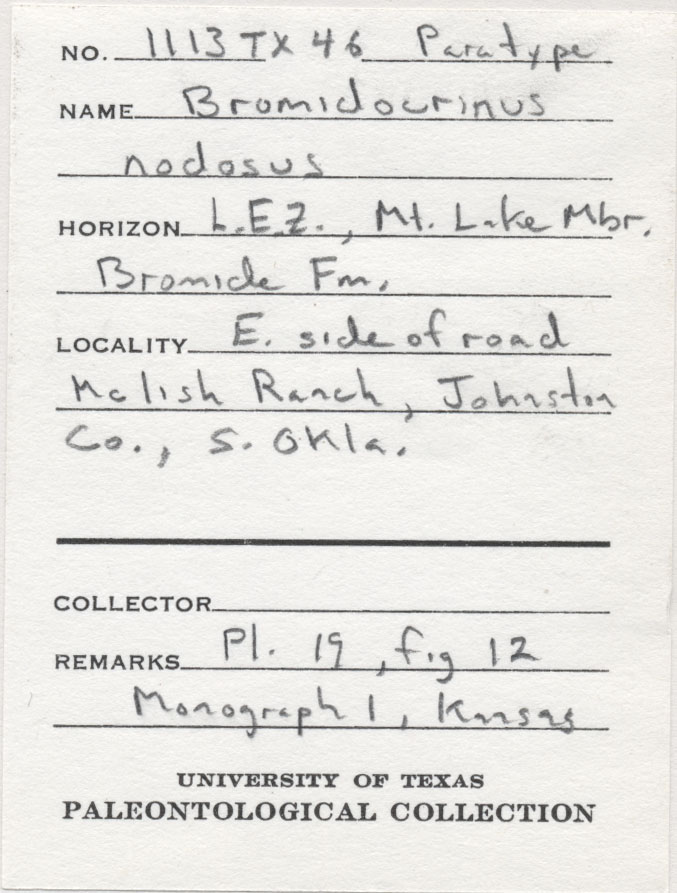 NO. 1113TX46 Paratype
NAME Bromidocrinus
nodosus
HORIZON L.E.Z., Mt. Lake Mbr.
Bromide Fm.
LOCALITY E. side of road
Mclish Ranch, Johnston
Co., S. Okla.
COLLECTOR
REMARKS Pl. 19, fig 12
Monograph 1, Kansas
UNIVERSITY OF TEXAS
PALEONTOLOGICAL COLLECTION